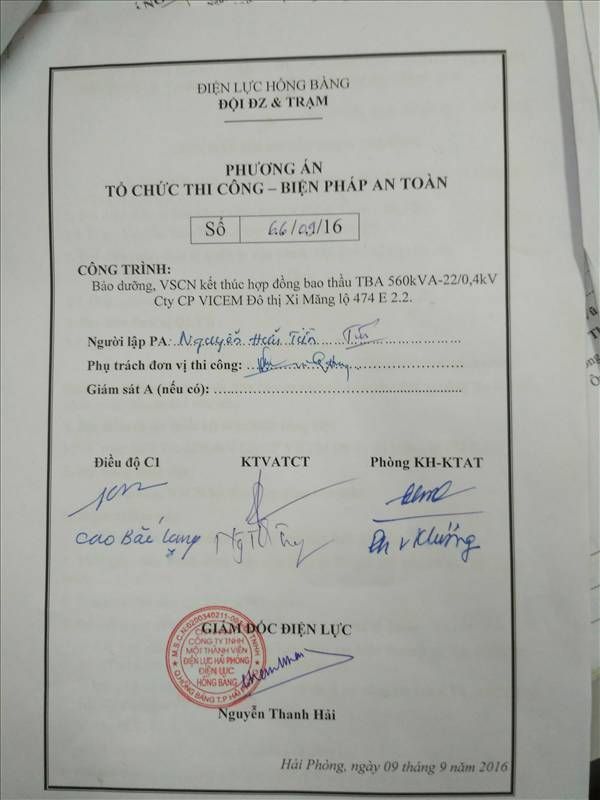 ĐIỆN LỰC HỒNG BÀNG
ĐỘI ĐZ & TRẠM
PHƯƠNG ÁN
TỔ CHỨC THI CÔNG – BIỆN PHÁP AN TOÀN
Số 66/09/16
CÔNG TRÌNH:
Bảo dưỡng, VSCN kết thúc hợp đồng bao thầu TBA 560kVA-22/0,4kV
Cty CP VICEM Đô thị Xi Măng lộ 474 E 2.2.
Người lập PA: Nguyễn Hữu Tiến
Phụ trách đơn vị thi công:
Giám sát A (nếu có):
Điều độ C1 KTVATCT Phòng KH-KTAT
Cao Bắc Lang Đn V Khương
GIÁM ĐỐC ĐIỆN LỰC
M.S.C.N:0200340211-00
CÔNG TY TNHH
MỘT THÀNH VIÊN
ĐIỆN LỰC HẢI PHÒNG
ĐIỆN LỰC
HỒNG BÀNG
Q.HỒNG BÀNG T.P HẢI PHÒNG
Nguyễn Thanh Hải
Hải Phòng, ngày 09 tháng 9 năm 2016